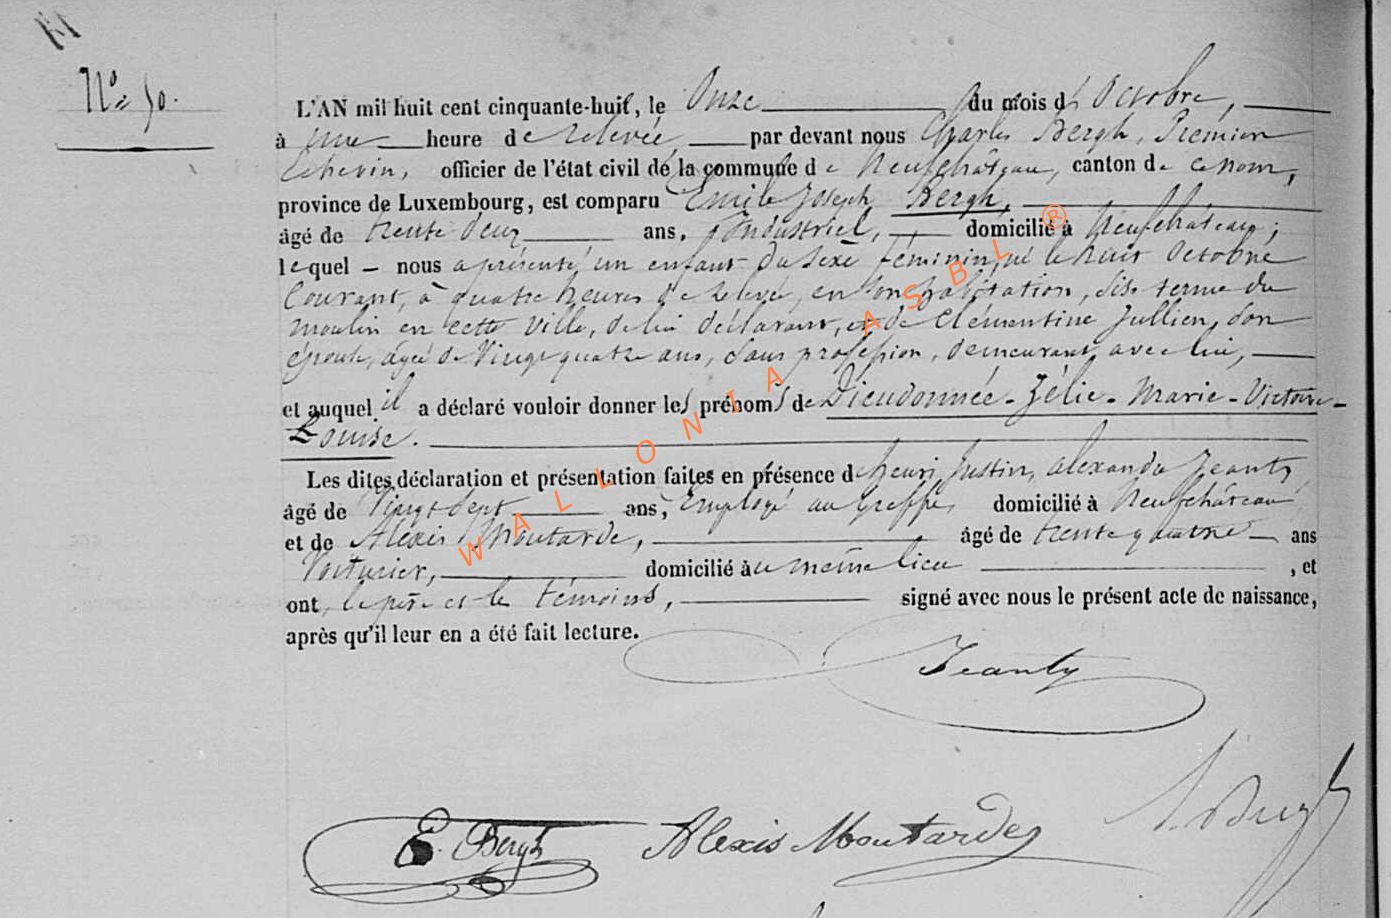 N° 50.
L'AN mil huit cent cinquante-huit, le Onze du mois d'Octobre,
à une heure de relevée, par devant nous Charles Bergh, Premier
Echevin, officier de l'état civil de la commune de Neufchâteau, canton de ce nom,
province de Luxembourg, est comparu Emile Joseph Bergh,
âgé de trente deux ans, Industriel, domicilié à Neufchâteau;
lequel nous a présenté un enfant du sexe féminin, né le huit Octobre
Courant, à quatre heures de relevée, en son habitation, sise terme du
moulin en cette Ville, de lui déclarant, et de Clémentine Jullien, son
épouse, âgée de Vingt quatre ans, sans profession, demeurant avec lui,
et auquel il a déclaré vouloir donner les prénoms de Dieudonnée-Zélie-Marie-Victoire-
Louise.
Les dites déclaration et présentation faites en présence de henri Justin, alexandre Jeanty
âgé de Vingt sept ans, Employé au Greffe, domicilié à Neufchâteau
et de Alexis Moutarde, âgé de trente quatre ans
Voiturier, domicilié au même lieu, et
ont, le père et les témoins, signé avec nous le présent acte de naissance,
après qu'il leur en a été fait lecture.
Jeanty
E. Bergh Alexis Moutarde Bergh
WALLONIA ASBL ®